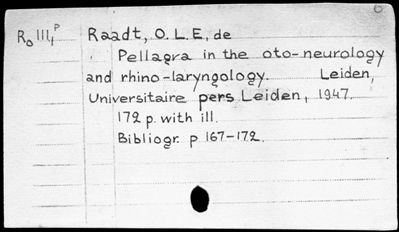 6
R₀ III,ᴾ Raadt, O.L.E, de
Pellagra in the oto-neurology
and rhino-laryngology. Leiden,
Universitaire pers Leiden, 1947.
172 p. with ill.
Bibliogr. p 167-172.